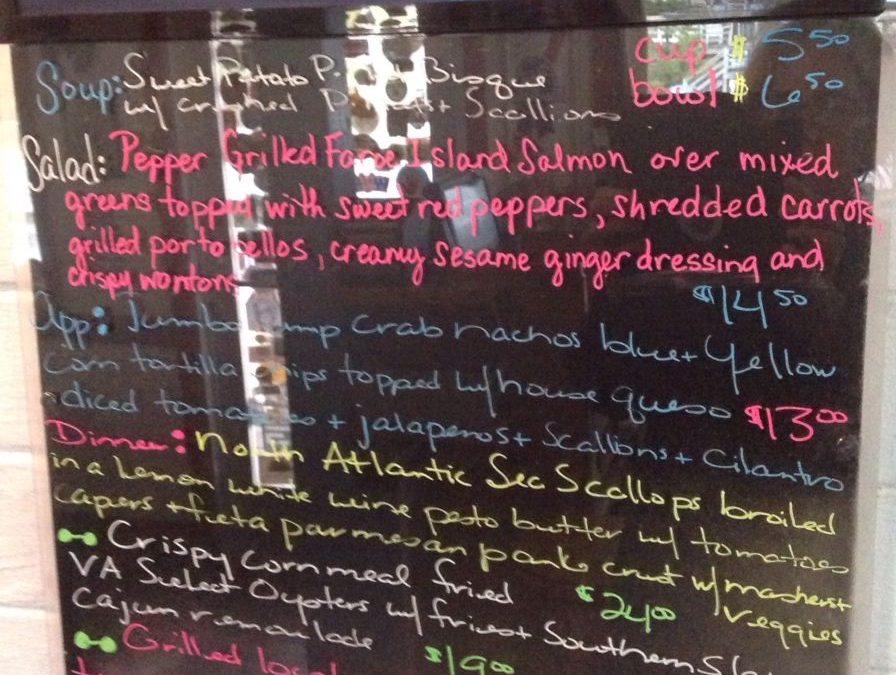 Soup: Sweet Potato Bisque cup $5 50
w/ crushed + Scallions bowl $6 50
Salad: Pepper Grilled Faroe Island Salmon over mixed
greens topped with sweet red peppers, shredded carrots,
grilled portobellos, creamy sesame ginger dressing and
crispy wontons $14 50
App: Jumbo Lump Crab nachos blue + yellow
corn tortilla chips topped w/ house queso $13 00
diced tomatoes + jalapenos + Scallions + Cilantro
Dinner: North Atlantic Sea Scallops broiled
in a Lemon white wine pesto butter w/ tomatoes
capers + feta parmesan panko crust w/ mashers +
veggies
Crispy Cornmeal fried $24 00
VA Select Oysters w/ fries + Southern
Cajun remoulade $19 00
Grilled local